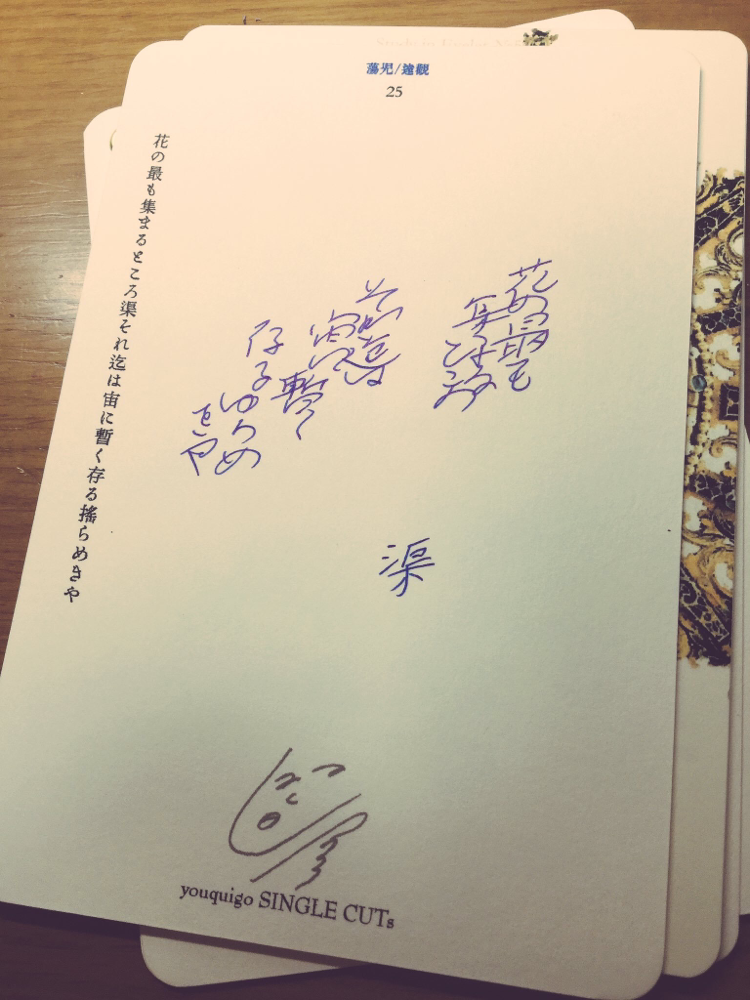 蕩児/遠觀
25
花の最も
集まるところ
それ迄は
宙に
暫く
存る
ゆらめ
きや
渠
花の最も集まるところ渠それ迄は宙に暫く存る搖らめきや
youquigo SINGLE CUTs